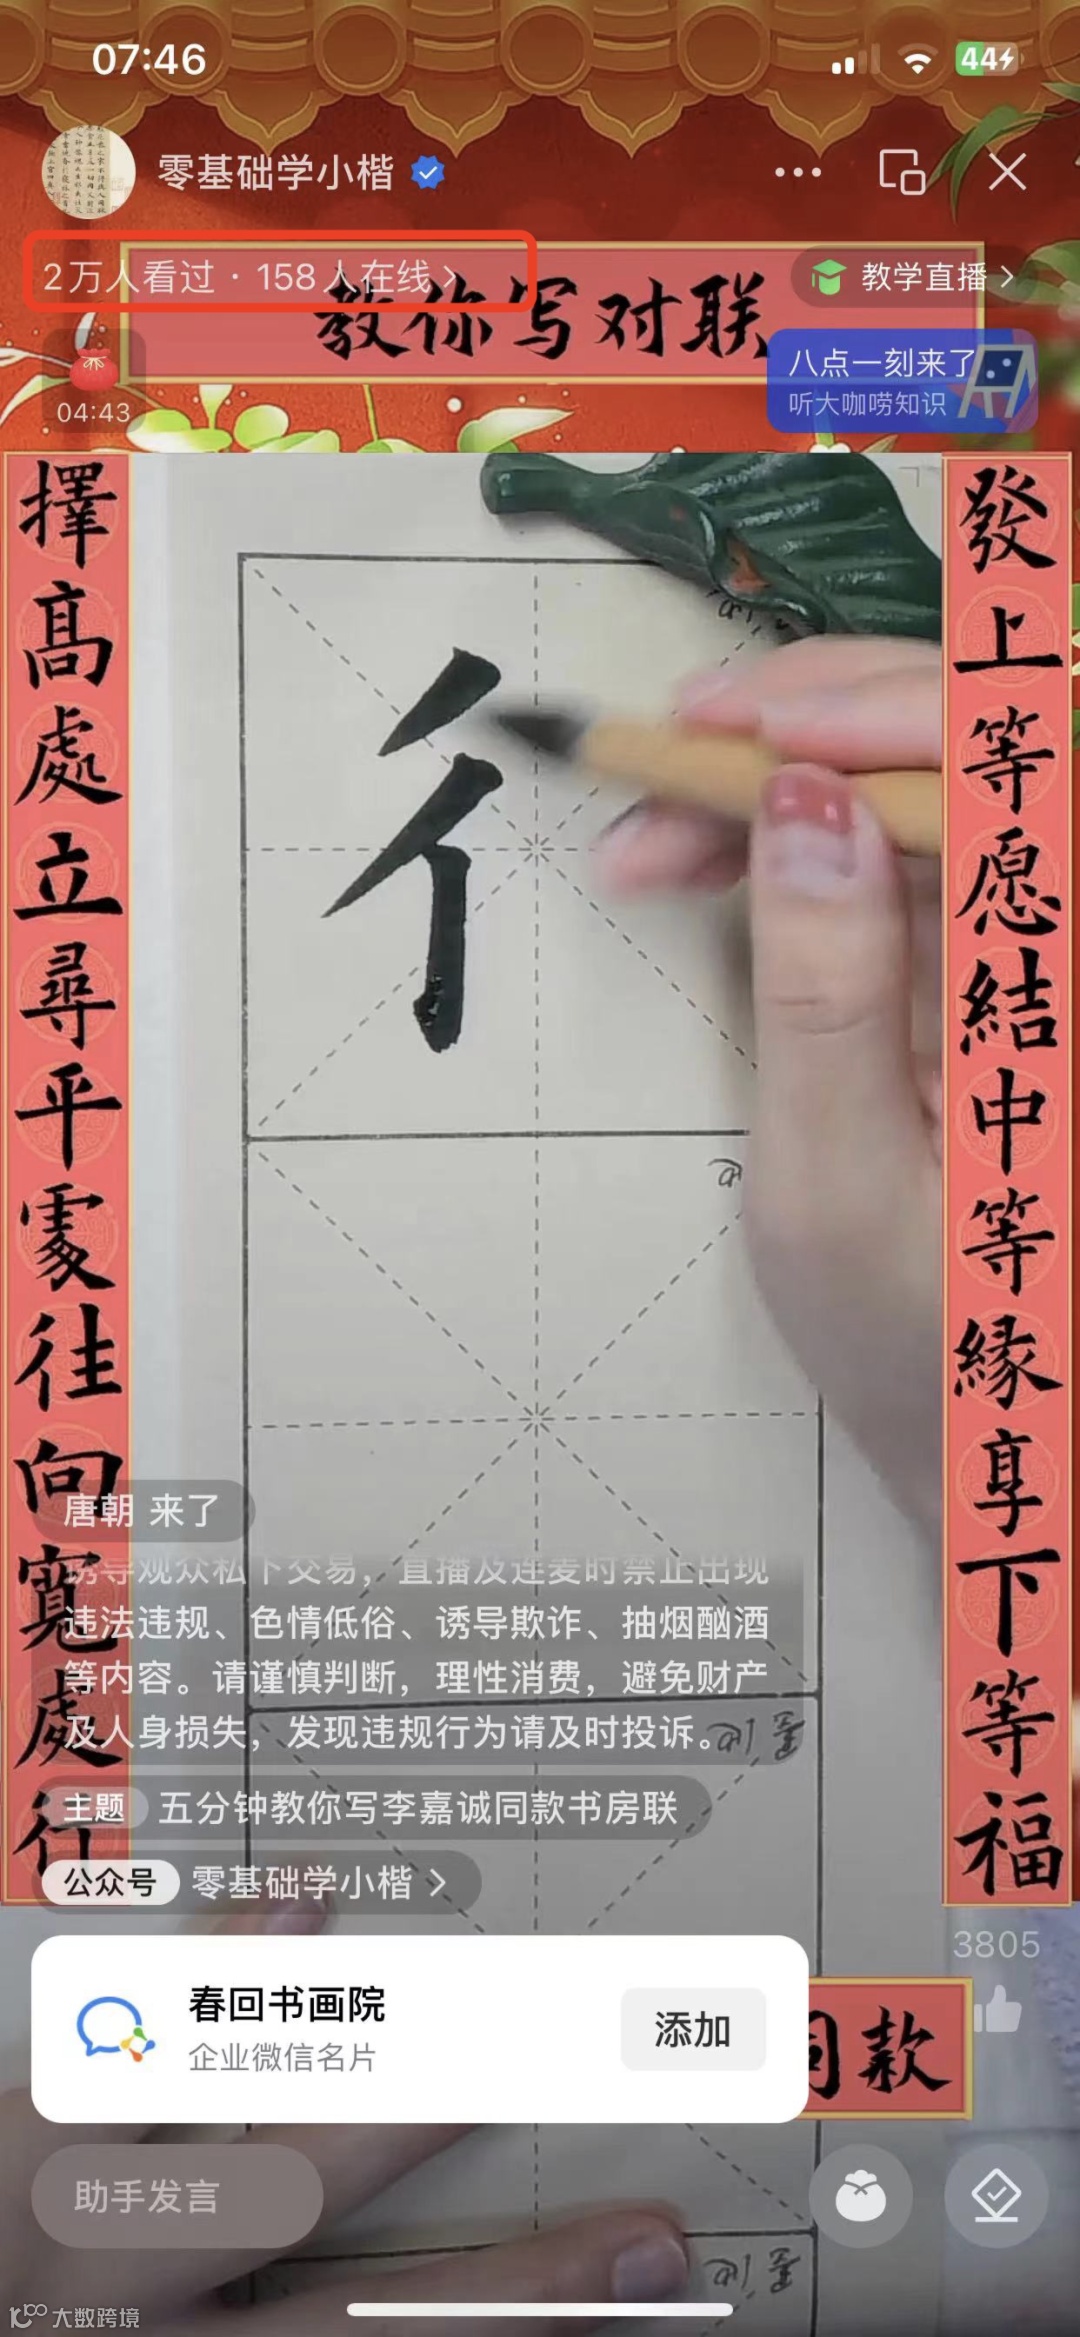 07:46
44
零基础学小楷
2万人看过 · 158人在线
教学直播
教你写对联
八点一刻来了
听大咖唠知识
04:43
發上等愿結中等緣享下等福
擇高處立尋平處往向寬處行
唐朝 来了
诱导观众私下交易，直播及连麦时禁止出现
违法违规、色情低俗、诱导欺诈、抽烟酗酒
等内容。请谨慎判断，理性消费，避免财产
及人身损失，发现违规行为请及时投诉。
主题 五分钟教你写李嘉诚同款书房联
公众号 零基础学小楷
3805
春回书画院
企业微信名片
添加
同款
助手发言
大数跨境